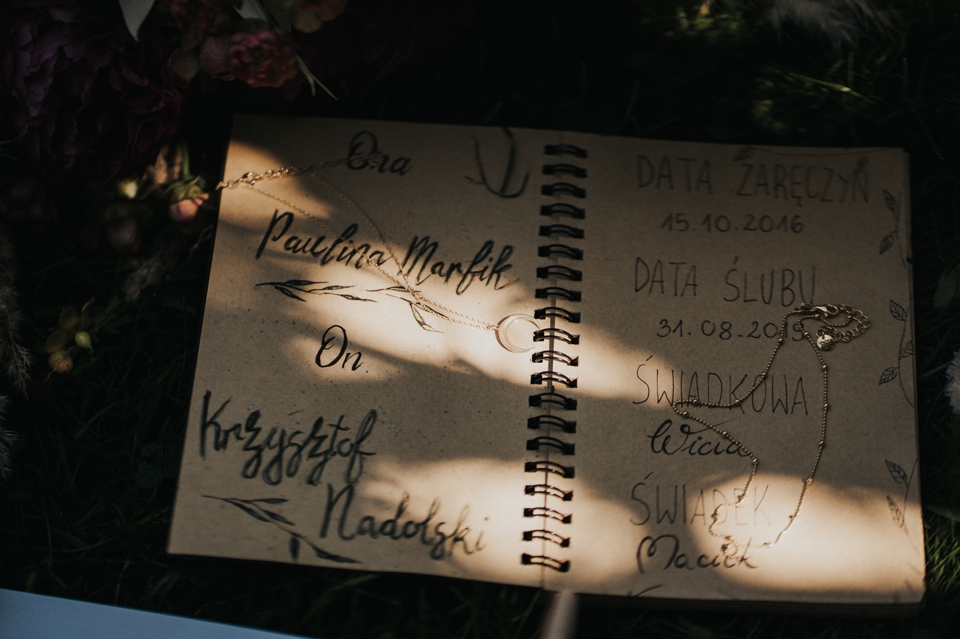 Ona
Paulina Marfik
On.
Krzyśztof
Nadolski
DATA ZARĘCZYN
15.10.2016
DATA ŚLUBU
31.08.2019
ŚWIADKOWA
Wicia
ŚWIADEK
Maciek